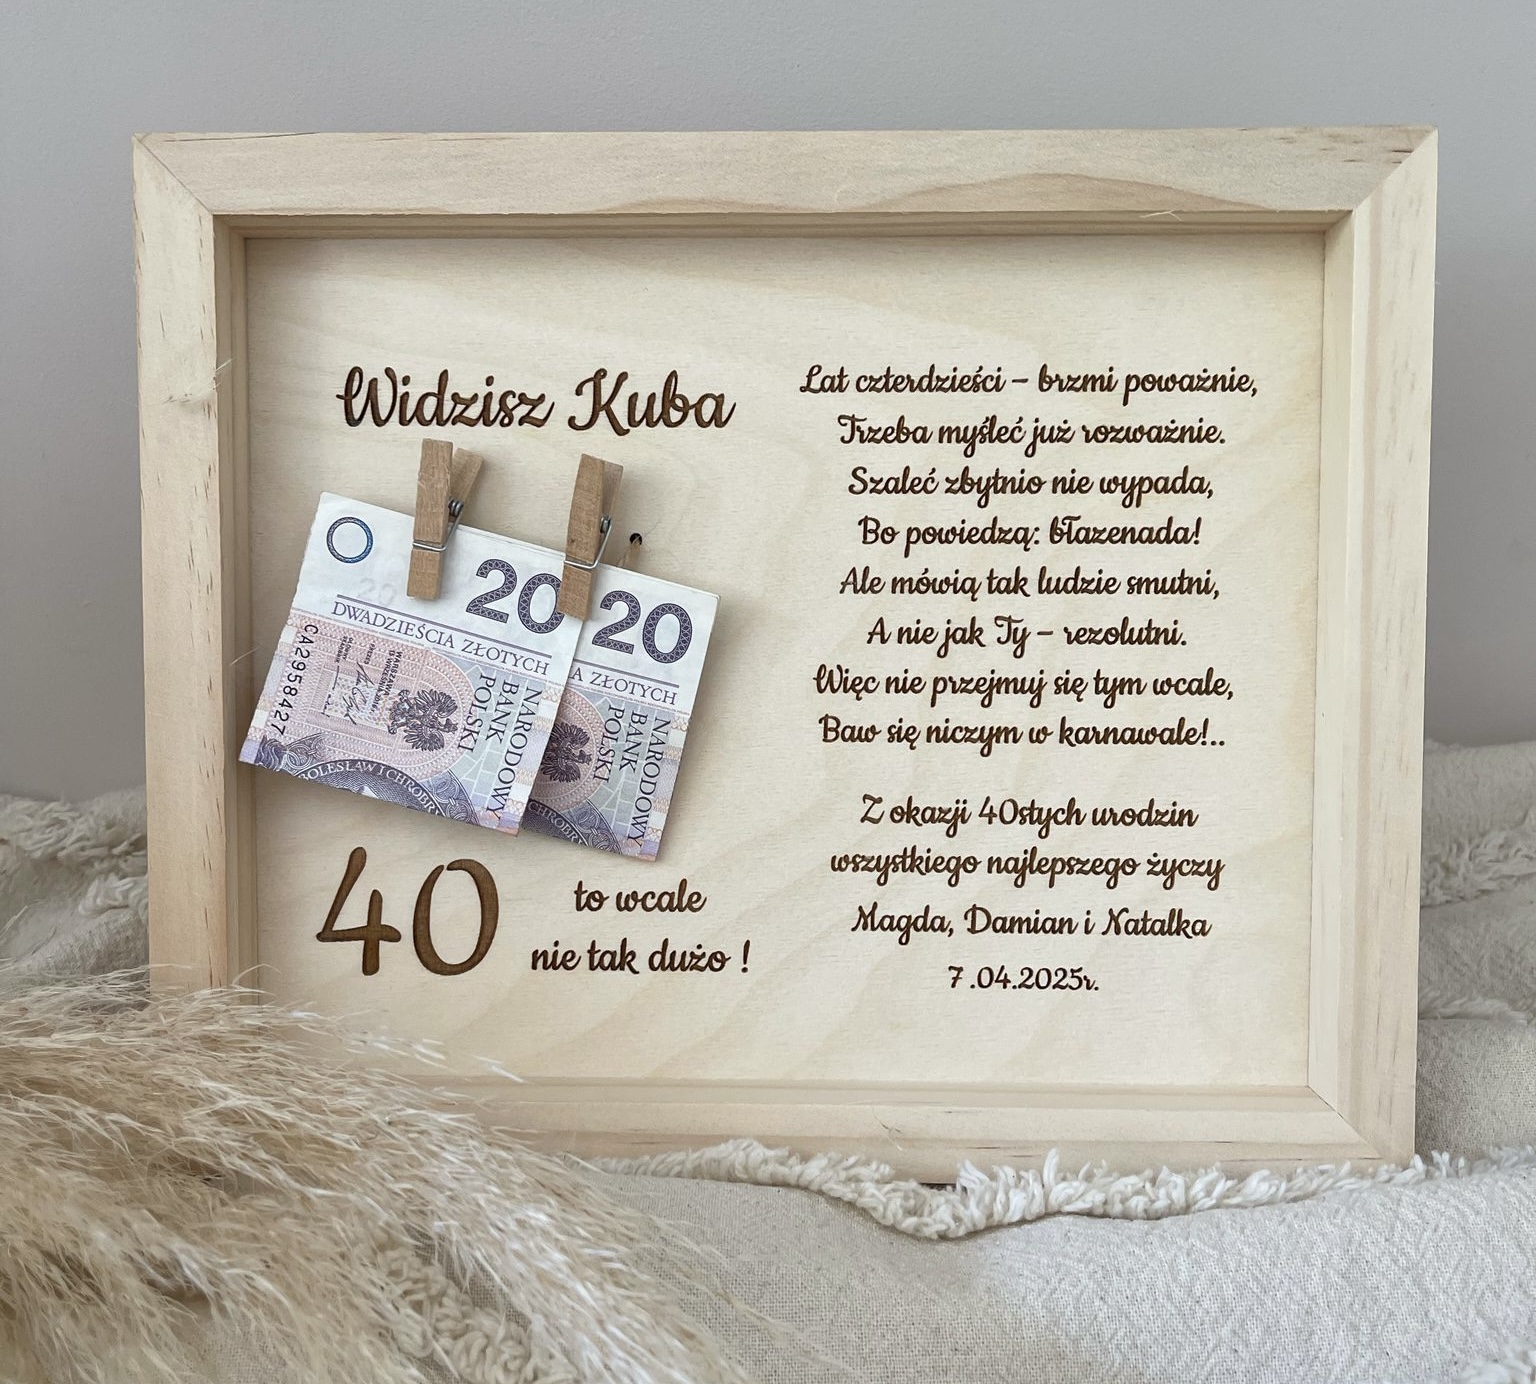 Widzisz Kuba
20
20
DWADZIEŚCIA ZŁOTYCH
A ZŁOTYCH
CA2958427
NARODOWY
BANK
POLSKI
NARODOWY
BANK
POLSKI
BOLESŁAW I CHROBRY
CHROBRY
40
to wcale
nie tak dużo !
Lat czterdzieści – brzmi poważnie,
Trzeba myśleć już rozważnie.
Szaleć zbytnio nie wypada,
Bo powiedzą: błazenada!
Ale mówią tak ludzie smutni,
A nie jak Ty – rezolutni.
Więc nie przejmuj się tym wcale,
Baw się niczym w karnawale!..
Z okazji 40stych urodzin
wszystkiego najlepszego życzy
Magda, Damian i Natalka
7.04.2025r.